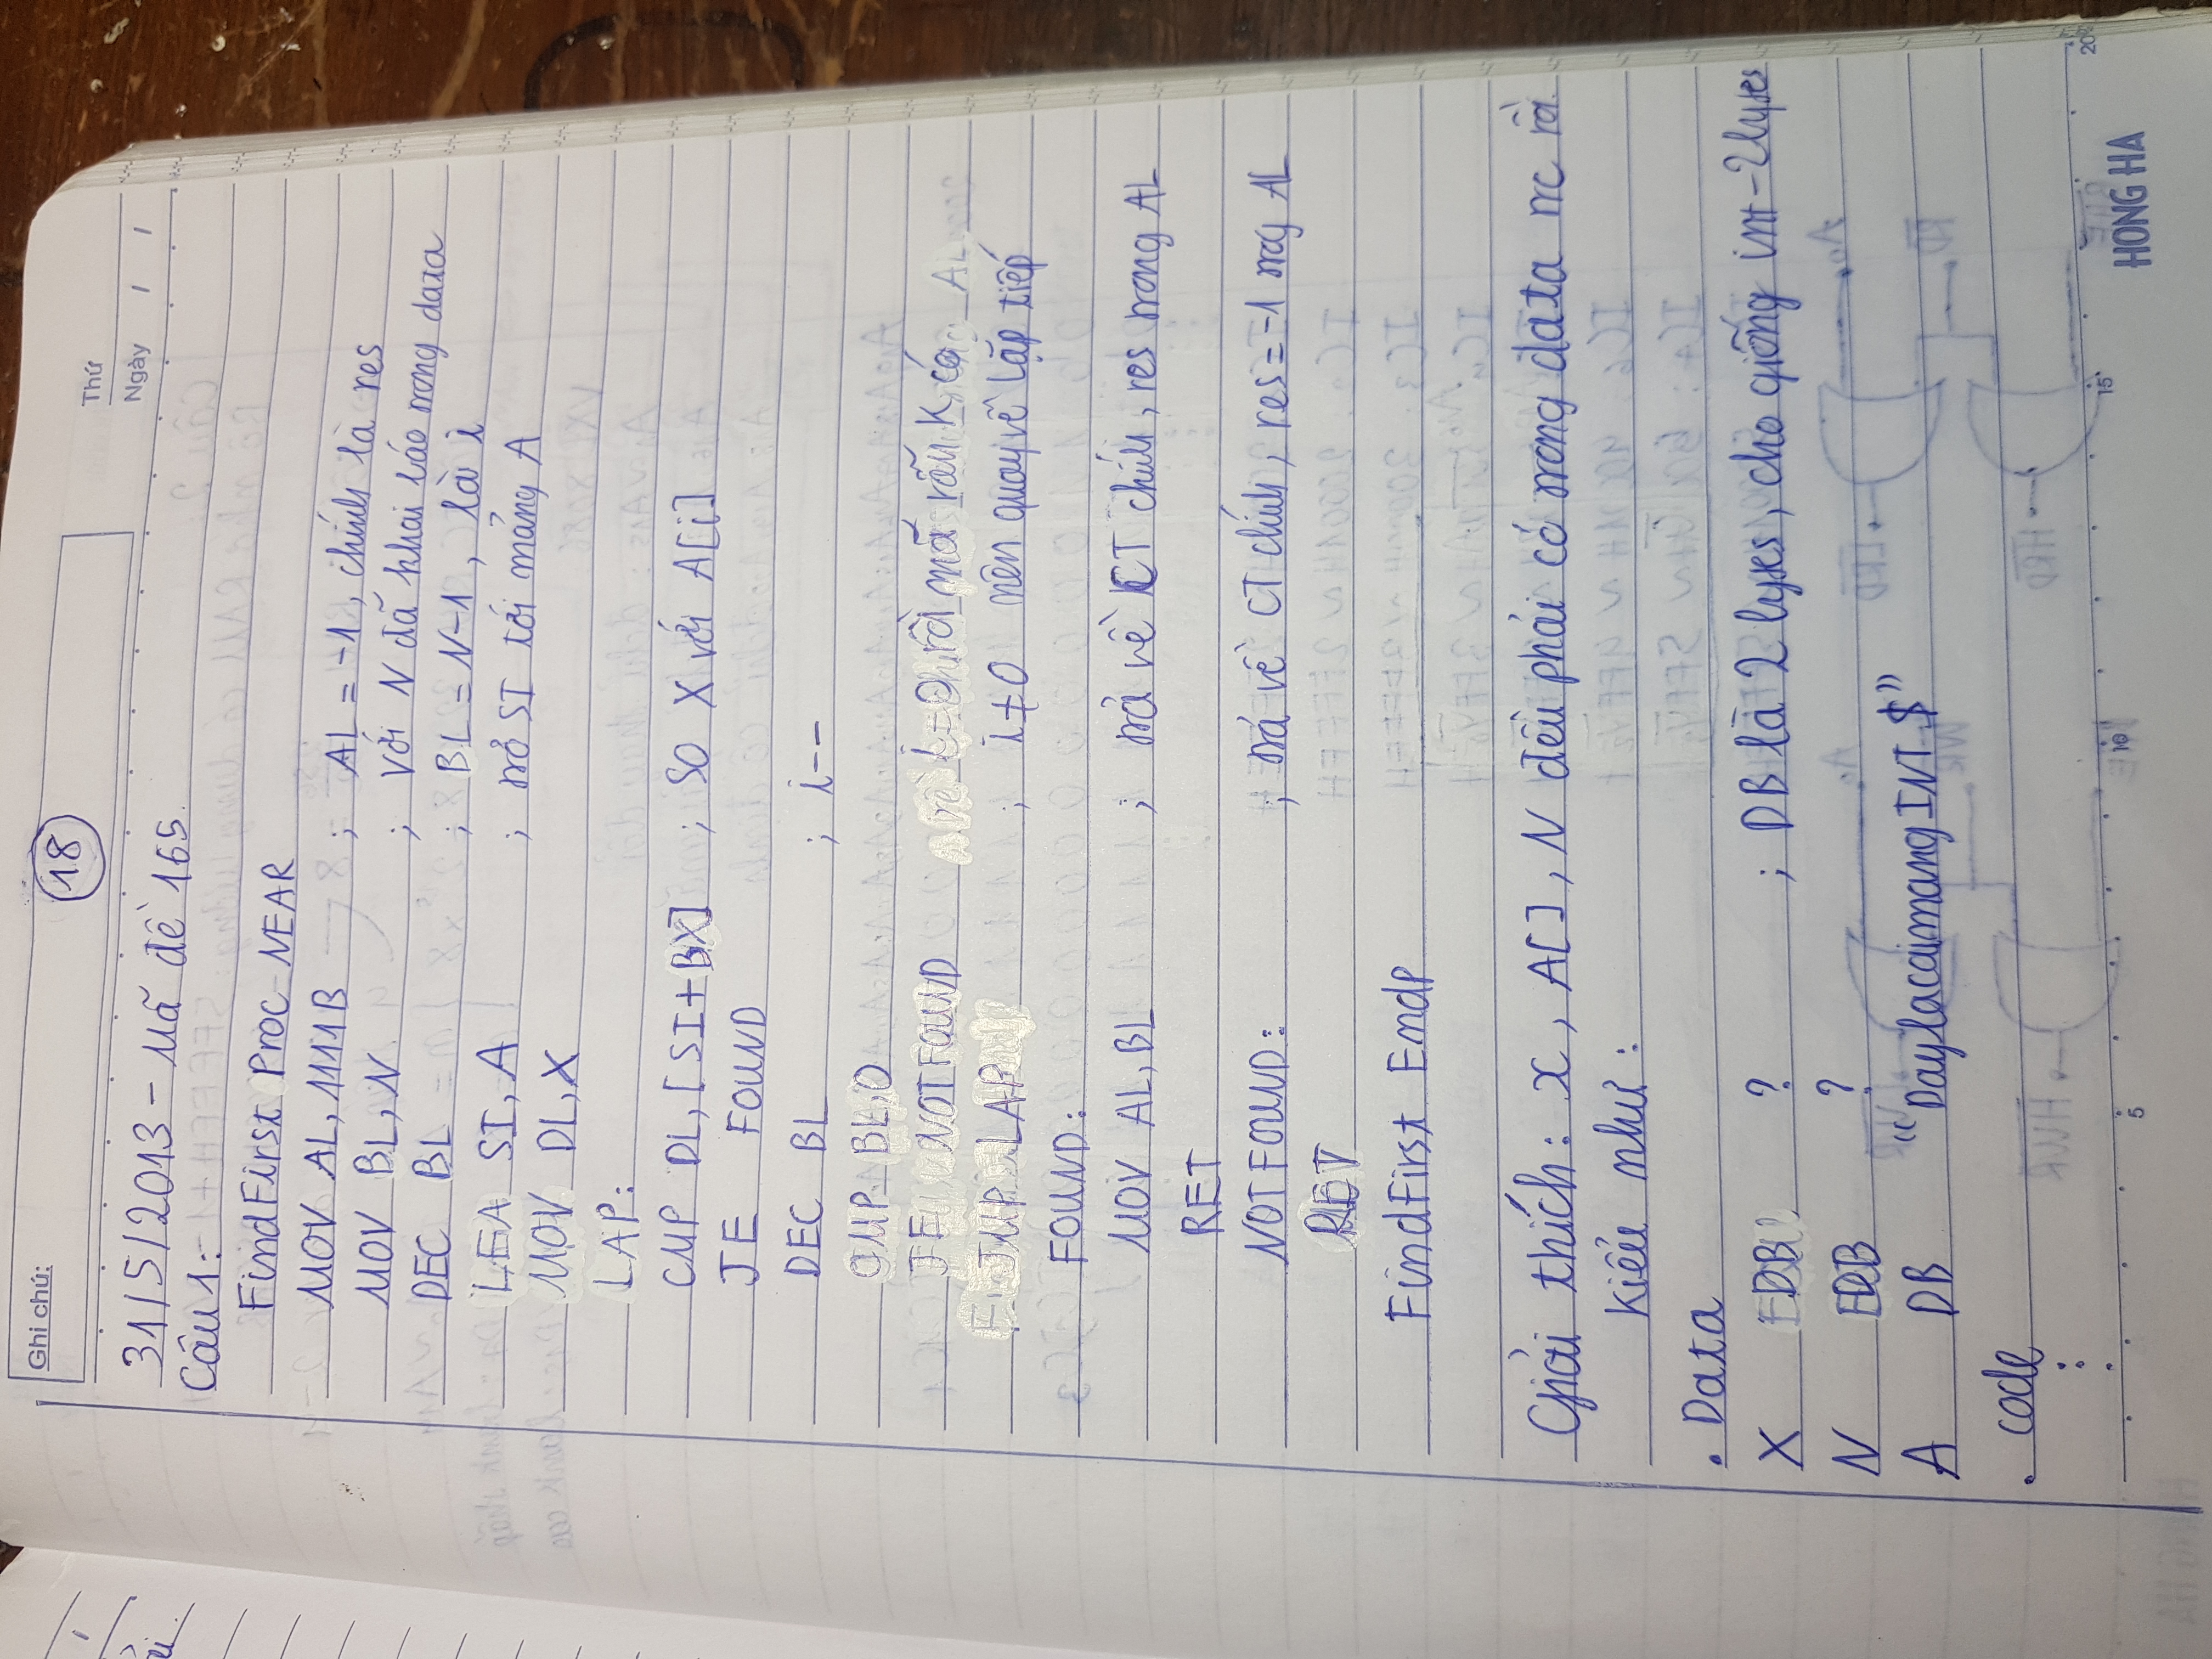 Ghi chú:
18
Thứ
Ngày / /
31/5/2013 - Mã đề 165.
Câu 1:
FindFirst Proc NEAR
MOV AL, 1111B ; AL = -1, chính là res
MOV BL, N ; với N đã khai báo trong data
DEC BL ; BL = N-1, là i
LEA SI, A ; trỏ SI tới mảng A
MOV DL, X
LAP:
CMP DL, [SI+BX] ; SO X với A[i]
JE FOUND
DEC BL ; i--
CMP BL, 0
JE NOTFOUND về i=0 rồi mã vẫn K có
JMP LAP ; i≠0 nên quay về lặp tiếp
FOUND:
MOV AL, BL ; trả về CT chính, res trong AL
RET
NOTFOUND: ; trả về CT chính, res = -1 trog AL
RET
FindFirst Endp
Giải thích: x, A[], N đều phải có trong data trc rồi.
Kiểu như:
. Data
X DB ? ; DB là 2 bytes, cho giống int - 2 bytes
N DB ?
A DB “DaylacaimangINT $”
. code
5
10
15
20
HONG HA